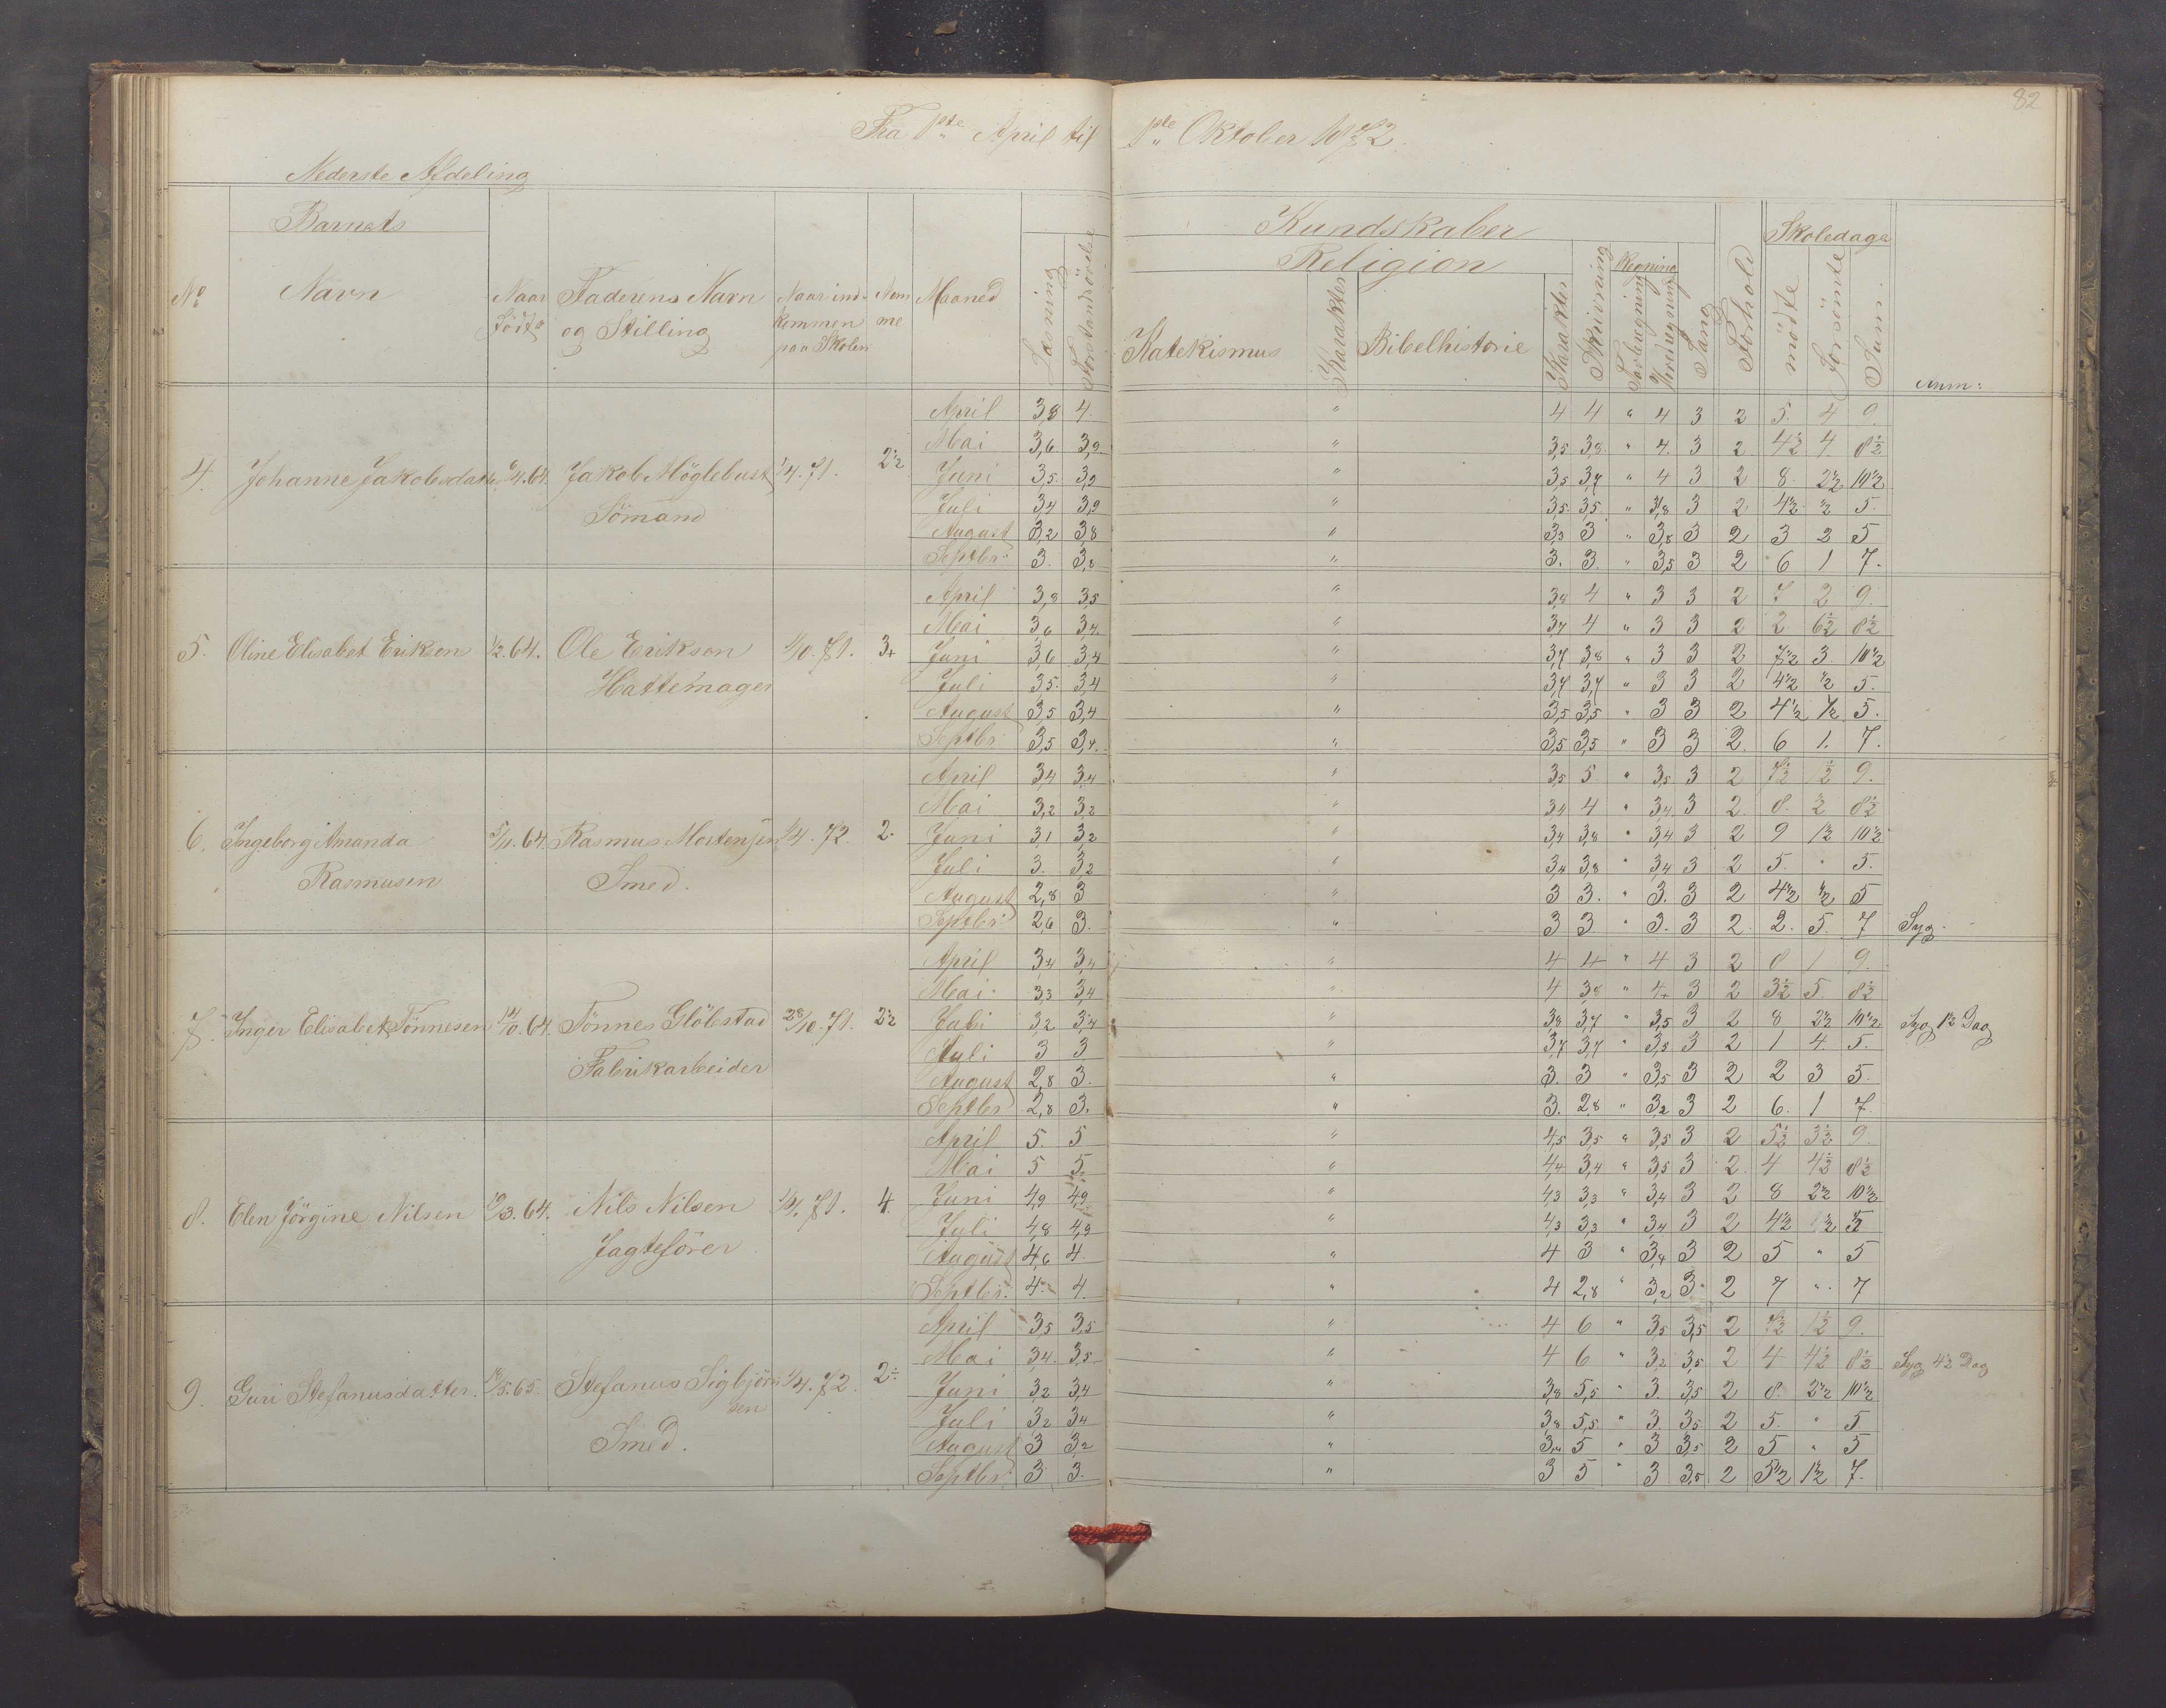 82
Fra 1ste April til 1ste Oktober 1872.
Nederste Afdeling
Barnets
Kundskaber
Skoledage
Religion
Regning
No Navn Naar født Faderens Navn og Stilling Naar indkommen paa Skolen Nemme Maaned Læsning Forstandsøvelse Katekismus Karakter Bibelhistorie Karakter Skrivning Tavleregning Hovedregning Sang Forhold mødte Forsømte Sum Anm:
April 3,8 4. " 4 4 " 4 3 2 5. 4 9.
Mai 3,6 3,9 " 3,5 3,8 " 4. 3 2. 4½ 4 8½
4. Johanne Jakobsdatter 6/4.64. Jakob Møglebust 1/4.71. 2½ Juni 3,5. 3,9 " 3,5 3,7 " 4 3 2 8. 2½ 10½
Sømand Juli 3,4 3,9 " 3,5. 3,5 " 3,8 3 2 4½ ½ 5.
August 3,2 3,8 " 3,3 3 " 3,8 3 2 3 2 5
Septbr. 3. 3,8 " 3. 3. " 3,5 3 2 6 1 7.
April 3,8 3,5 " 3,8 4 " 3 3 2 7 2 9.
Mai 3,6 3,4. " 3,7 4 " 3 3 2 2 6½ 8½
5. Oline Elisabet Erikson 1/2.64. Ole Erikson 1/10.71. 3+ Juni 3,6 3,4 " 3,7 3,8 " 3 3 2 7½ 3 10½
Hattemager Juli 3,5. 3,4 " 3,7 3,7 " 3 3 2 4½ ½ 5.
August 3,5 3,4 " 3,5 3,5 " 3 3 2 4½ ½ 5.
Septbr 3,5 3,4. " 3,5 3,5 " 3 3 2. 6 1. 7.
April 3,4 3,4 " 3,5 5 " 3,5 3 2 7½ 1½ 9.
Mai 3,2 3,2 " 3,4 4 " 3,4 3 2. 8. ½ 8½
6. Ingeborg Amanda 5/11.64. Rasmus Mortensen 1/4.72. 2. Juni 3,1 3,2 " 3,4 3,8 " 3,4 3 2 9 1½ 10½
Rasmusen Smed. Juli 3. 3,2 " 3,4 3,8 " 3,4 3 2 5 " 5.
August 2,8 3 " 3 3. " 3. 3 2 4½ ½ 5
Septbr. 2,6 3. " 3 3 " 3. 3 2. 2. 5. 7 Syg.
April 3,4 3,4 " 4 4 " 4 3 2 8 1 9.
Mai 3,3 3,4 " 4 3,8 " 4 3 2 3½ 5. 8½
7. Inger Elisabet Tønnesen 14/10.64. Tønnes Gløbstad 28/10.71. 2½ Juni 3,2 3,4 " 3,8 3,7 " 3,5 3 2 8 2½ 10½ Syg 1½ Dag
Fabrikarbeider Juli 3 3 " 3,7 3,7 " 3,5 3 2 1 4 5.
August 2,8 3. " 3. 3 " 3,5 3 2 2 3 5.
Septbr 2,8 3. " 3. 2,8 " 3,2 3 2 6. 1 7.
April 5. 5 " 4,5 3,5 " 3,5 3 2 5½ 3½ 9.
Mai 5 5. " 4,4 3,4 " 3,5 3 2. 4 4½ 8½
8. Elen Jørgine Nilsen 19/3.64. Nils Nilsen 1/4.71. 4. Juni 4,9 4,9 " 4,3 3,3 " 3,4 3 2 8 2½ 10½
Jagtefører Juli 4,8 4,9 " 4,3 3,3 " 3,4 3 2 4½ ½ 5
August 4,6 4 " 4 3 " 3,4 3 2 5 " 5
Septbr. 4. 4. " 4 2,8 " 3,2 3. 2 7 " 7
April 3,5 3,5 " 4 6 " 3,5 3,5 2 7½ 1½ 9.
Mai 3,4. 3,5 " 4 6 " 3,2 3,5 2 4 4½ 8½ Syg 4½ Dag
9. Guri Stefanusdatter. 14/5.65. Stefanus Sigbjørn 1/4.72. 2÷ Juni 3,2 3,4 " 3,8 5,5 " 3. 3,5 2 8. 2½ 10½
sen
Smed. Juli 3,2 3,4 " 3,8 5,5. " 3. 3,5 2 5. " 5
August 3 3,2 " 3,4 5 " 3 3,5 2 5 " 5
Septbr. 3 3. " 3 5 " 3 3,5 2 5½ 1½ 7.